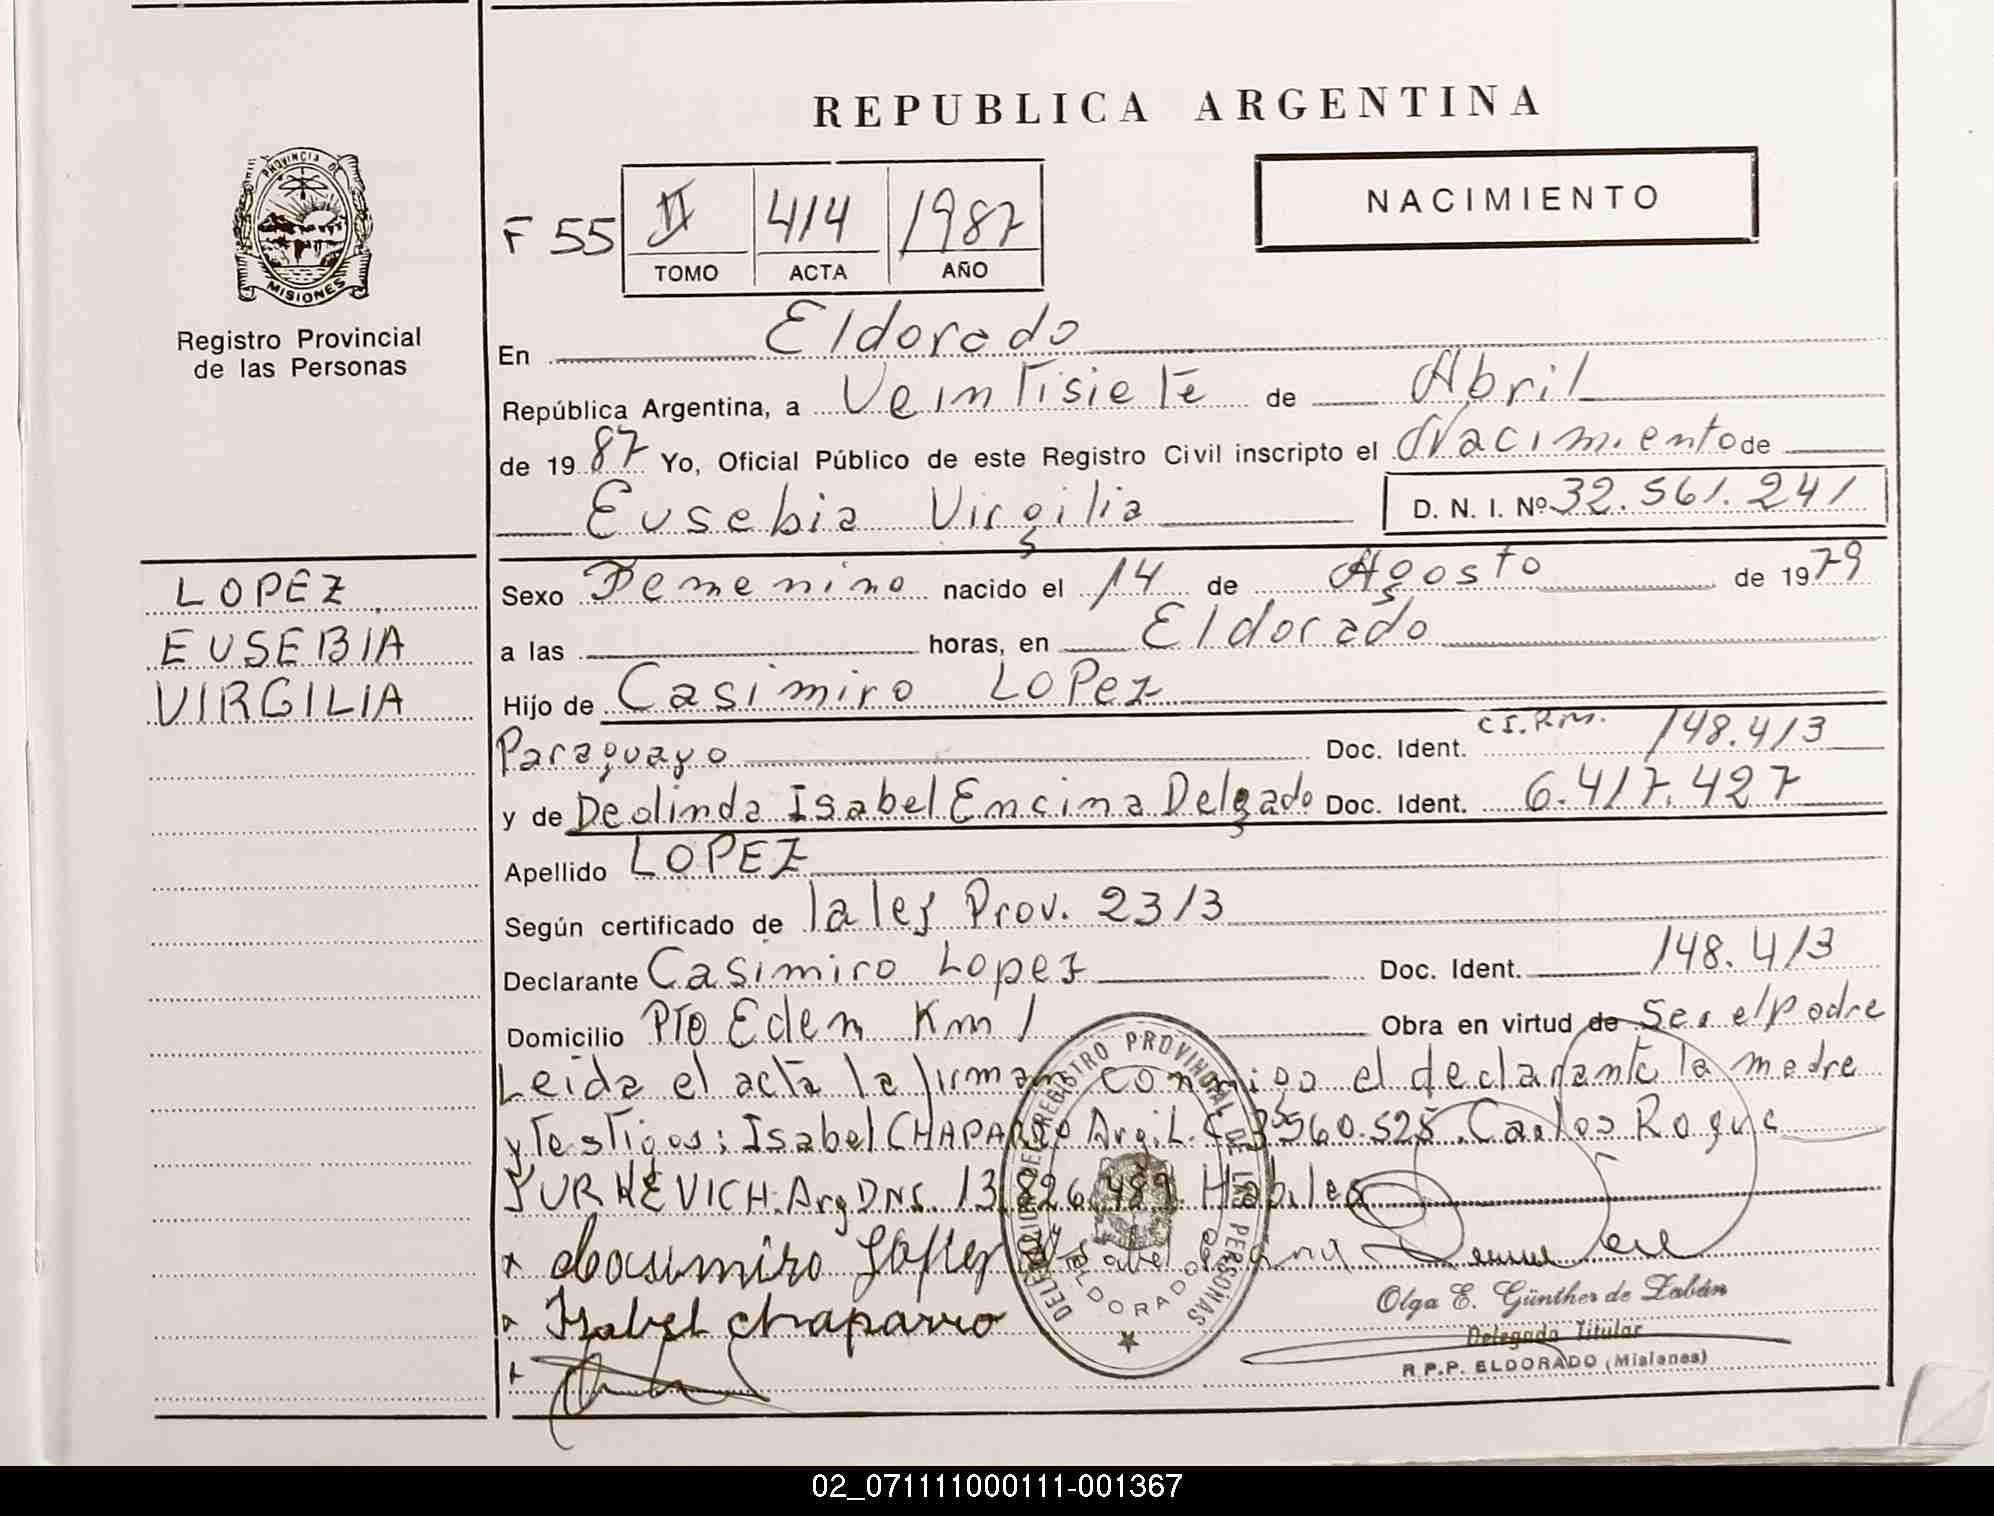 REPUBLICA ARGENTINA
NACIMIENTO
PROVINCIA DE
MISIONES
Registro Provincial
de las Personas
F 55 II 414 1987
TOMO ACTA AÑO
En Eldorado
República Argentina, a Veintisiete de Abril
de 1987 Yo, Oficial Público de este Registro Civil inscripto el Nacimiento de
Eusebia Virgilia D. N. I. Nº 32.561.241
LOPEZ
EUSEBIA
VIRGILIA
Sexo Femenino nacido el 14 de Agosto de 1979
a las horas, en Eldorado
Hijo de Casimiro LOPez
Paraguayo Doc. Ident. C.I.P.M. 148.413
y de Deolinda Isabel Encina Delgado Doc. Ident. 6.417.427
Apellido LOPEZ
Según certificado de la ley Prov. 2313
Declarante Casimiro Lopez Doc. Ident. 148.413
Domicilio Pto Eden Km 1 Obra en virtud de Ser el padre
Leida el acta la firman conmigo el declarante la madre
y Testigos: Isabel CHAPARRO Arg. L.C. 3.560.525. Carlos Roque
YURKEVICH. Arg DNI. 13.826.489. Habiles
x Casimiro López Isabel
x Isabel chaparro
x
DELEGACION DEL REGISTRO PROVINCIAL DE LAS PERSONAS
ELDORADO
Olga E. Günther de Zabán
Delegada Titular
R.P.P. ELDORADO (Misiones)
02_071111000111-001367